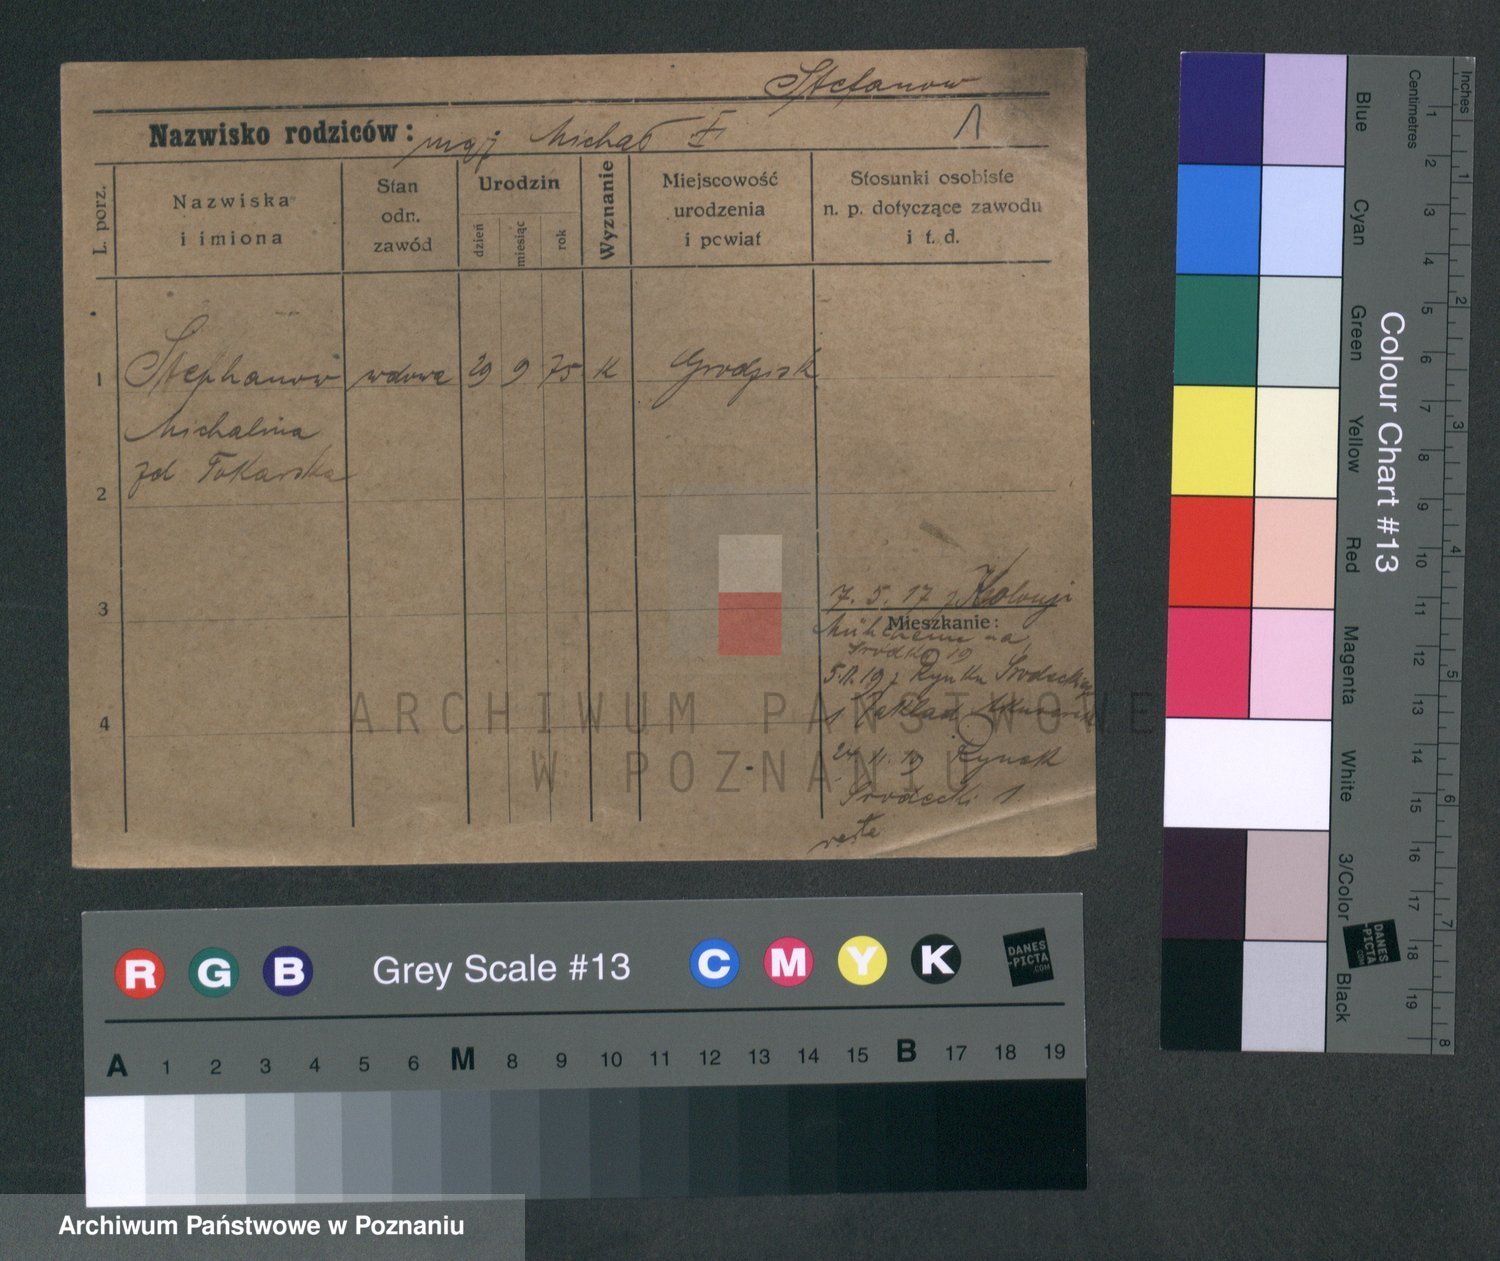 Stefanow
Nazwisko rodziców: mąż Michał
L. porz.
Nazwiska i imiona
Stan odn. zawód
Urodzin
dzień
miesiąc
rok
Wyznanie
Miejscowość urodzenia i powiat
Stosunki osobiste n. p. dotyczące zawodu i t. d.
1 Stephanow wdowa 29 9 75 K Grodzisk
Michalina
zd Tokarska
2
3
7. 5. 17 z
Mieszkanie:
na
Śródka 19
5. 11. 19 z Rynku
1 Zakład
4
24. 11. 19 Rynek
Śródecki 1.
ARCHIWUM PAŃSTWOWE
W POZNANIU
R G B Grey Scale #13 C M Y K
DANES
-PICTA
.COM
A 1 2 3 4 5 6 M 8 9 10 11 12 13 14 15 B 17 18 19
Colour Chart #13
Blue
Cyan
Green
Yellow
Red
Magenta
White
3/Color
Black
Centimetres
1 2 3 4 5 6 7 8 9 10 11 12 13 14 15 16 17 18 19
Inches
1 2 3 4 5 6 7 8
DANES
-PICTA
.COM
Archiwum Państwowe w Poznaniu